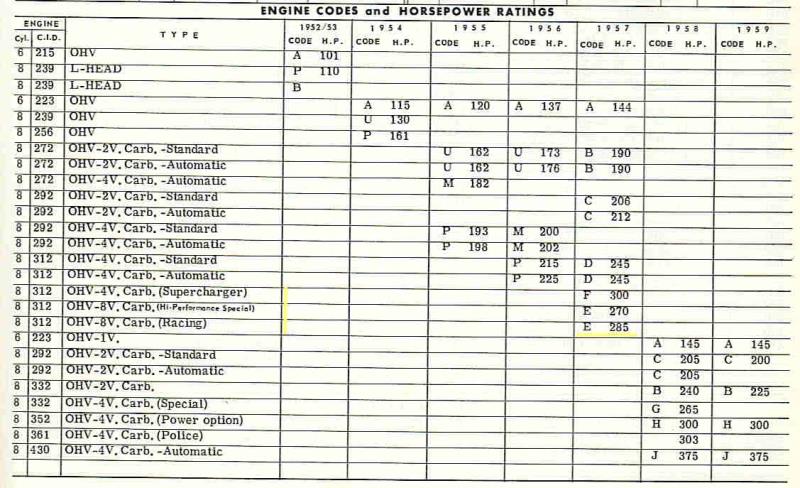 ENGINE CODES and HORSEPOWER RATINGS
ENGINE TYPE 1952/53 1954 1955 1956 1957 1958 1959
Cyl. C.I.D. CODE H.P. CODE H.P. CODE H.P. CODE H.P. CODE H.P. CODE H.P. CODE H.P.
6 215 OHV A 101
8 239 L-HEAD P 110
8 239 L-HEAD B
6 223 OHV A 115 A 120 A 137 A 144
8 239 OHV U 130
8 256 OHV P 161
8 272 OHV-2V. Carb. -Standard U 162 U 173 B 190
8 272 OHV-2V. Carb. -Automatic U 162 U 176 B 190
8 272 OHV-4V. Carb. -Automatic M 182
8 292 OHV-2V. Carb. -Standard C 206
8 292 OHV-2V. Carb. -Automatic C 212
8 292 OHV-4V. Carb. -Standard P 193 M 200
8 292 OHV-4V. Carb. -Automatic P 198 M 202
8 312 OHV-4V. Carb. -Standard P 215 D 245
8 312 OHV-4V. Carb. -Automatic P 225 D 245
8 312 OHV-4V. Carb. (Supercharger) F 300
8 312 OHV-8V. Carb. (Hi-Performance Special) E 270
8 312 OHV-8V. Carb. (Racing) E 285
6 223 OHV-1V. A 145 A 145
8 292 OHV-2V. Carb. -Standard C 205 C 200
8 292 OHV-2V. Carb. -Automatic C 205
8 332 OHV-2V. Carb. B 240 B 225
8 332 OHV-4V. Carb. (Special) G 265
8 352 OHV-4V. Carb. (Power option) H 300 H 300
8 361 OHV-4V. Carb. (Police) 303
8 430 OHV-4V. Carb. -Automatic J 375 J 375